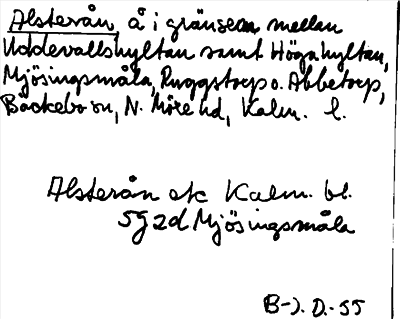 Alsterån, å i gränsen mellan
Uddevallshyltan samt Högahyltan,
Mjösingsmåla, Ruggstorp o. Abbetorp,
Bäckebo sn, N. Möre hd, Kalm. l.
Alsterån ek Kalm. bl.
5g2d Mjösingsmåla
B-J. D.-55